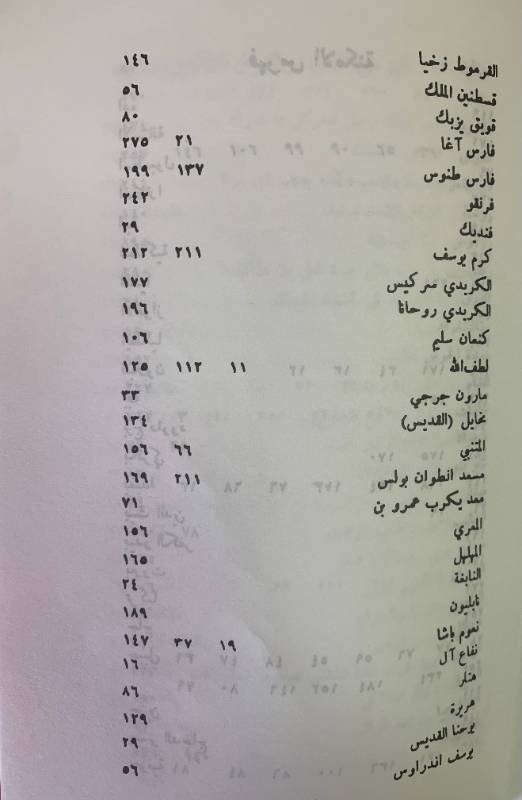 القرموط زخيا ١٤٦
قسطنطين الملك ٥٦
قويق يزبك ٨٠
فارس آغا ٢١ ٢٧٥
فارس طنوس ١٣٧ ١٩٩
فرنقو ٢٤٢
فنديك ٢٩
كرم يوسف ٢١١ ٢١٢
الكريدي سركيس ١٧٧
الكريدي روحانا ١٩٦
كنعان سليم ١٠٦
لطف الله ١١ ١١٢ ١٢٥
مارون جرجي ٣٣
مخايل (القديس) ١٣٤
المتنبي ٦٦ ١٥٦
مسعد انطوان بولس ٢١١ ١٦٩
معد يكرب عمرو بن ٧١
المعري ١٥٦
المهلهل ١٦٥
النابغة ٢٤
نابليون ١٨٩
نعوم باشا ١٩ ٣٧ ١٤٧
نفاع آل ١٦
هتلر ٨٦
هريرة ١٢٩
يوحنا القديس ٢٩
يوسف اندراوس ٥٦